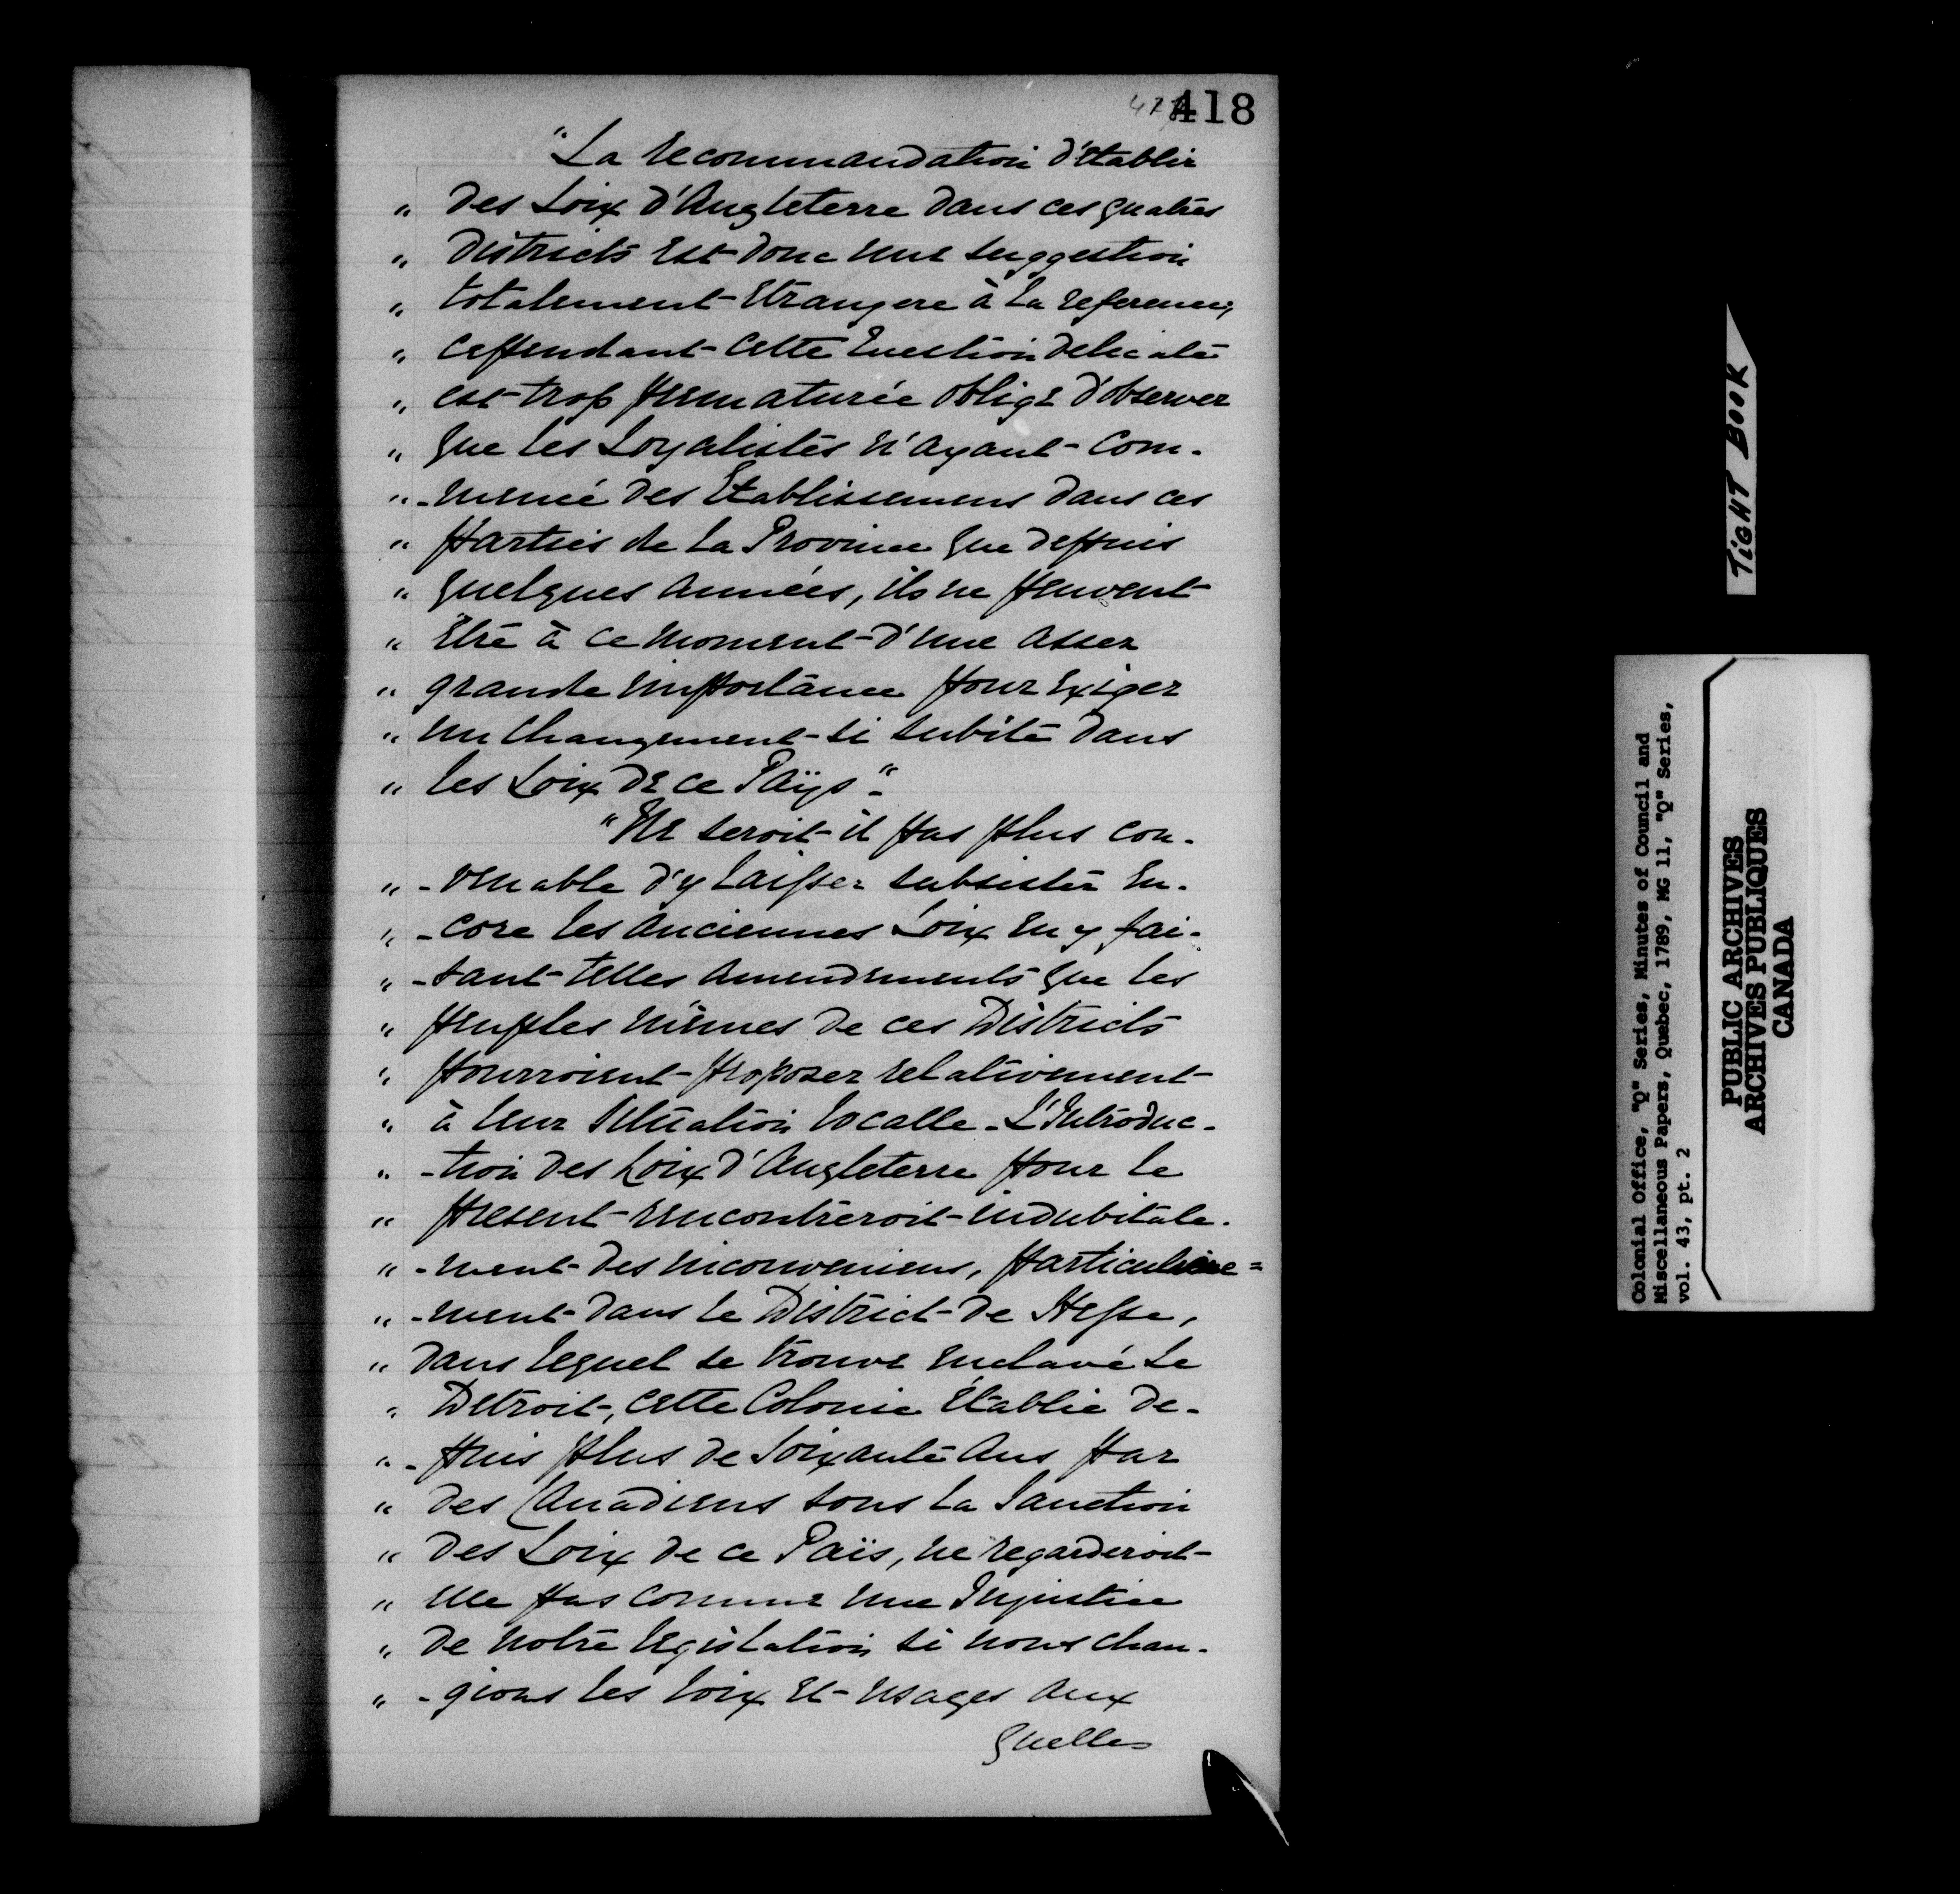 418
"La recommandation d'etablir
" des Loix d'Angleterre dans ces quatres
" Districts est donc une suggestion
" totalement Etrangere à la reference,
" Cependant cette Question delicate
" est trop prematurée oblige d'observer
" que les Loyalistes n'ayant Com-
" -mencé des Etablissemens dans ces
" Parties de la Province que depuis
" quelques Années, ils ne peuvent
" Etre à ce moment d'une assez
" grande importance pour Exiger
" un Changement si subite dans
" les Loix de ce Païs".
"Ne seroit-il pas plus con-
" -venable d'y laisser subsister En-
" -core les anciennes Loix En y fai-
" -sant telles Amendements que les
" peuples mêmes de ces Districts
" pourroient proposer relativement
" à leur Situation localle. L'Introduc-
" -tion des Loix d'Angleterre pour le
" present rencontreroit indubitable-
" -ment des inconveniens, particuliere=
" -ment dans le District de Hesse,
" dans lequel se trouve Enclavé Le
" Detroit, cette Colonie Etablie de-
" -puis plus de Soixante Ans par
" des Canadiens sous la Sanction
" des Loix de ce Païs, ne regarderoit
" elle pas comme une Injustice
" de notre legislation si nous chan-
" -gions les loix et usages aux
quelles
TIGHT BOOK
Colonial Office, "Q" Series, Minutes of Council and
Miscellaneous Papers, Quebec, 1789, MG 11, "Q" Series,
vol. 43, pt. 2
PUBLIC ARCHIVES
ARCHIVES PUBLIQUES
CANADA